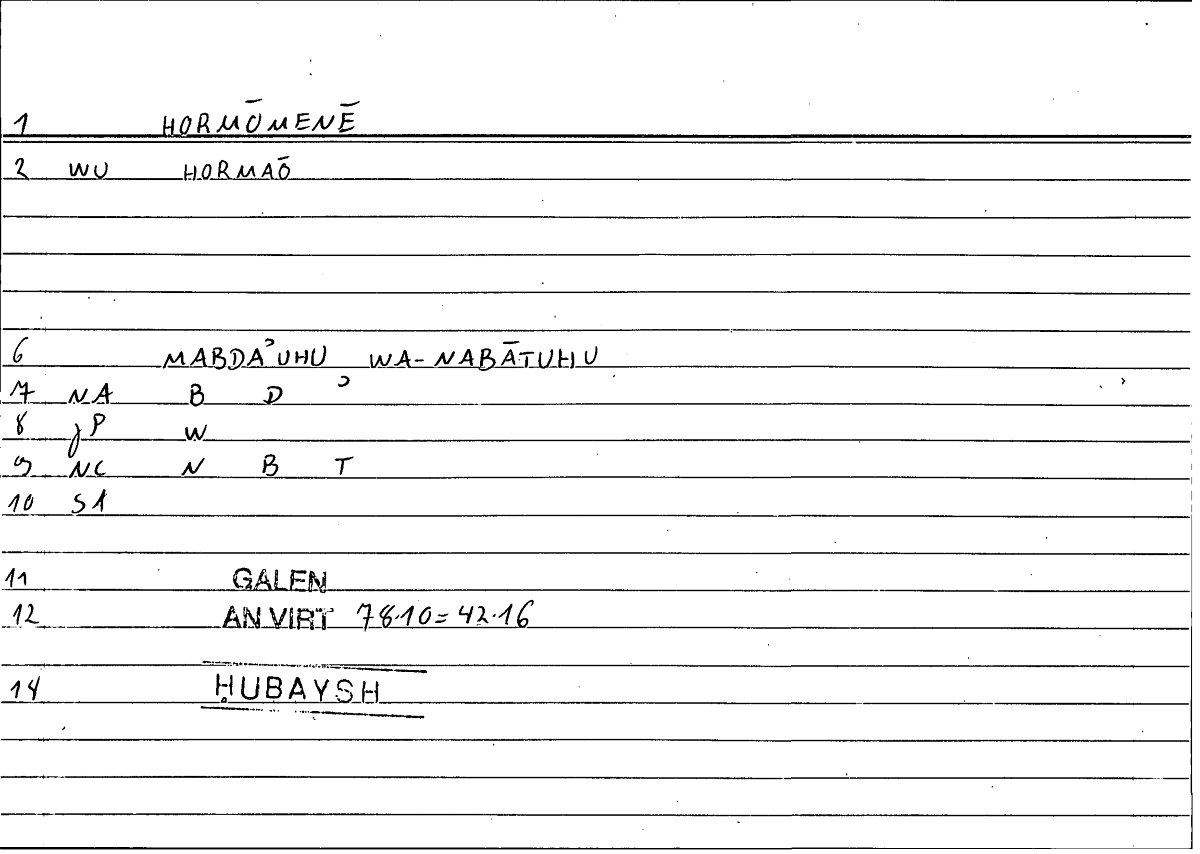 1 HORMŌMENĒ
2 WU HORMAŌ
6 MABDAʾUHU WA-NABĀTUHU
7 NA B D ʾ
8 JP W
9 NC N B T
10 S1
11 GALEN
12 AN VIRT 78.10=42.16
14 ḤUBAYSH